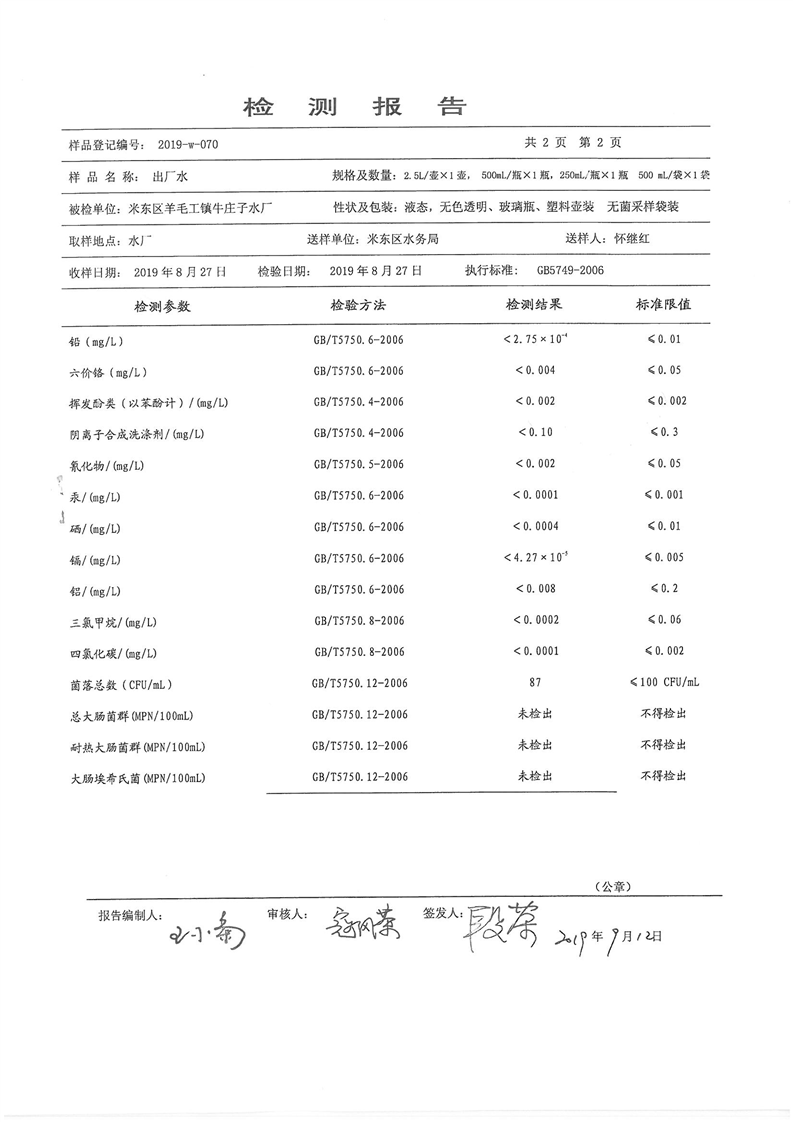 检 测 报 告
样品登记编号： 2019-w-070 共 2 页 第 2 页
样 品 名 称： 出厂水 规格及数量：2.5L/壶×1壶， 500mL/瓶×1瓶，250mL/瓶×1瓶 500 mL/袋×1袋
被检单位：米东区羊毛工镇牛庄子水厂 性状及包装：液态，无色透明、玻璃瓶、塑料壶装 无菌采样袋装
取样地点：水厂 送样单位：米东区水务局 送样人：怀继红
收样日期： 2019 年 8 月 27 日 检验日期： 2019 年 8 月 27 日 执行标准： GB5749-2006
检测参数 检验方法 检测结果 标准限值
铅（mg/L） GB/T5750.6-2006 <2.75×10⁻⁴ ≤0.01
六价铬（mg/L） GB/T5750.6-2006 <0.004 ≤0.05
挥发酚类（以苯酚计）/(mg/L) GB/T5750.4-2006 <0.002 ≤0.002
阴离子合成洗涤剂/(mg/L) GB/T5750.4-2006 <0.10 ≤0.3
氰化物/(mg/L) GB/T5750.5-2006 <0.002 ≤0.05
汞/(mg/L) GB/T5750.6-2006 <0.0001 ≤0.001
硒/(mg/L) GB/T5750.6-2006 <0.0004 ≤0.01
镉/(mg/L) GB/T5750.6-2006 <4.27×10⁻⁵ ≤0.005
铝/(mg/L) GB/T5750.6-2006 <0.008 ≤0.2
三氯甲烷/(mg/L) GB/T5750.8-2006 <0.0002 ≤0.06
四氯化碳/(mg/L) GB/T5750.8-2006 <0.0001 ≤0.002
菌落总数（CFU/mL） GB/T5750.12-2006 87 ≤100 CFU/mL
总大肠菌群(MPN/100mL) GB/T5750.12-2006 未检出 不得检出
耐热大肠菌群(MPN/100mL) GB/T5750.12-2006 未检出 不得检出
大肠埃希氏菌(MPN/100mL) GB/T5750.12-2006 未检出 不得检出
（公章）
报告编制人： 审核人： 签发人：段荣 2019年9月12日